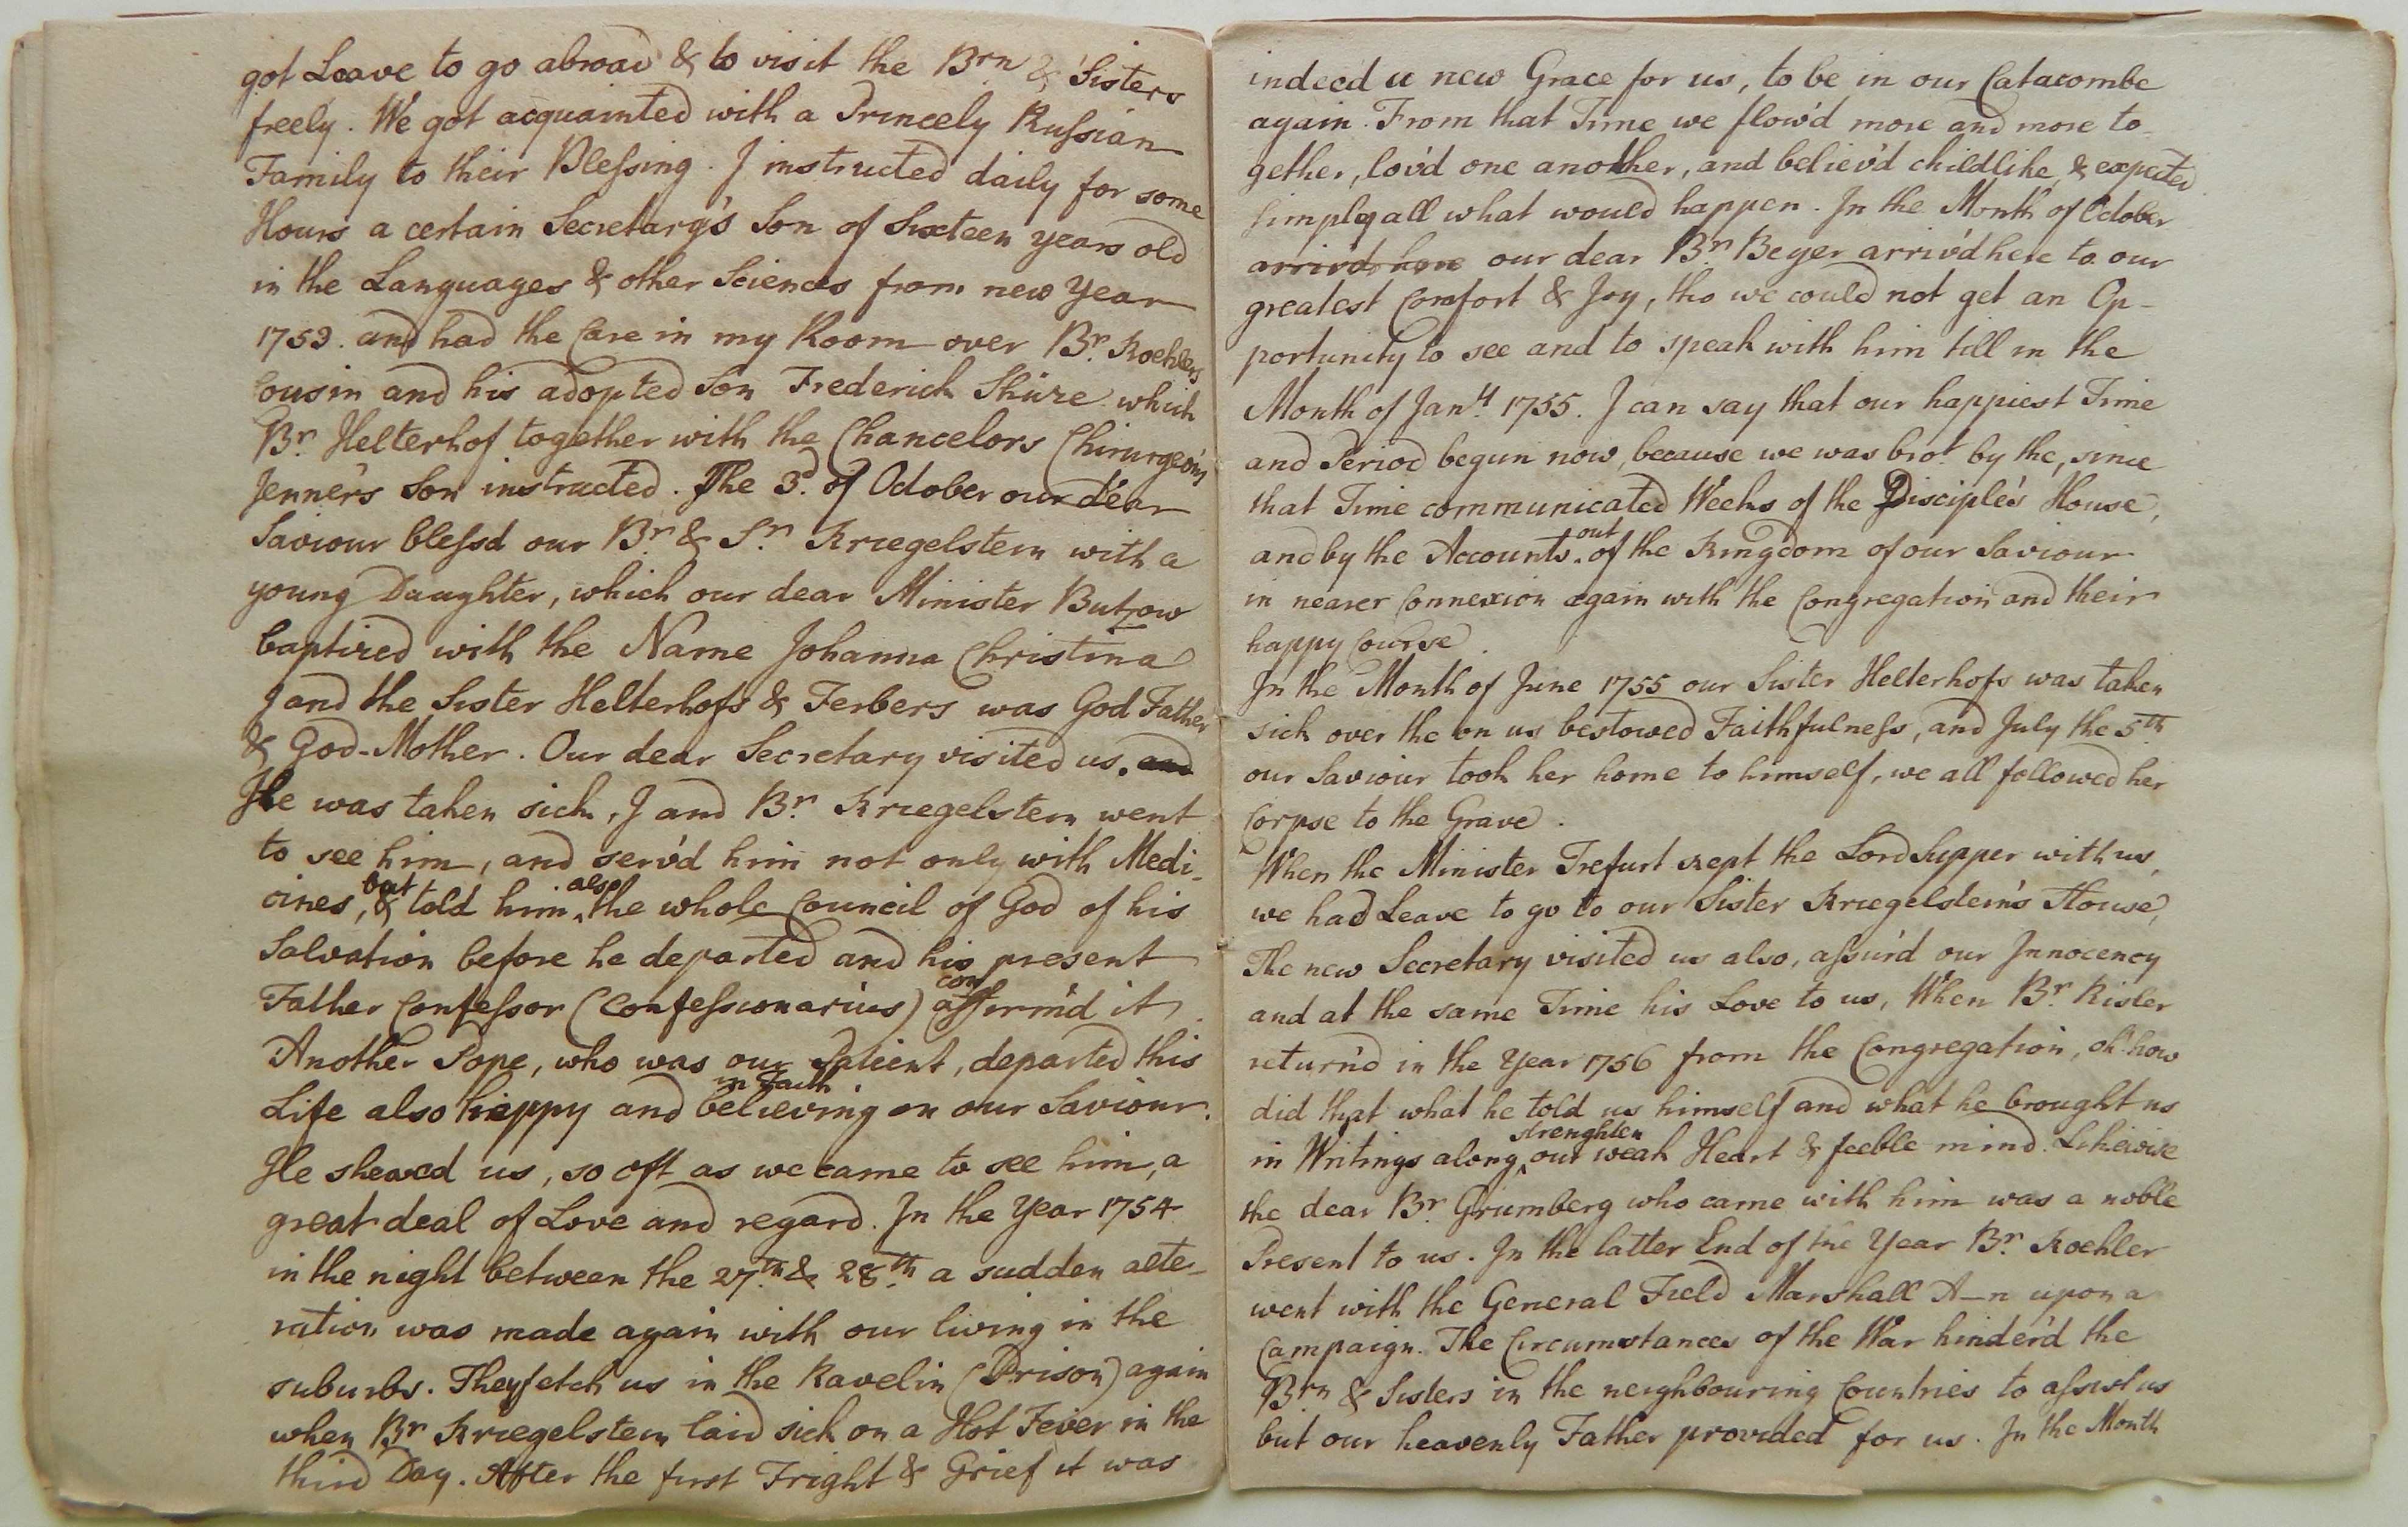 got Leave to go abroad & to visit the Brn & Sisters
freely. We got acquainted with a Princely Russian
Family to their Blessing. I instructed daily for some
Hours a certain Secretary's Son of Sixteen years old
in the Languages & other Sciences from new Year
1753. and had the Care in my Room over Br. Koehlers
Cousin and his adopted Son Frederick Shüze which
Br. Helterhof together with the Chancelors Chirurgeon's
Jenner's Son instructed. The 3d. of October our dear
Saviour blessd our Br. & Sr. Kriegelstein with a
young Daughter, which our dear Minister Butzow
baptized with the Name Johanna Christina
I and the Sister Helterhofs & Ferbers was God Father
& God-Mother. Our dear Secretary visited us. and
He was taken sick, I and Br. Kriegelstein went
to see him, and serv'd him not only with Medi-
cines, but & told him also the whole Council of God of his
Salvation before he departed and his present
Father Confessor (Confessionarius) con affirm'd it.
Another Pope, who was our Patient, departed this
Life also happy and in Faith believing on our Saviour.
He shewed us, so oft as we came to see him, a
great deal of Love and regard. In the Year 1754
in the night between the 27th. & 28th. a sudden alte-
ration was made again with our living in the
suburbs. They fetch us in the Ravelin (Prison) again
when Br Kriegelstein laid sick on a Hot Fever in the
third Day. After the first Fright & Grief it was
indeed a new Grace for us, to be in our Catacombe
again. From that Time we flow'd more and more to-
gether, lov'd one another, and believ'd childlike, & expected
simply all what would happen. In the Month of October
arriv'd here our dear Br. Beyer arriv'd here to our
greatest Comfort & Joy, tho we could not get an Op-
portunity to see and to speak with him till in the
Month of Jany 1755. I can say that our happiest Time
and Period begun now, because we was brot by the, since
that Time communicated Weeks of the Disciple's House,
and by the Accounts out of the Kingdom of our Saviour
in nearer Connexion again with the Congregation and their
happy Course.
In the Month of June 1755 our Sister Helterhofs was taken
sick over the on us bestowed Faithfulness, and July the 5th.
our Saviour took her home to himself, we all followed her
Corpse to the Grave.
When the Minister Trefurt kept the Lord Supper with us,
we had Leave to go to our Sister Kriegelstein's House,
The new Secretary visited us also, assur'd our Innocency
and at the same Time his Love to us, When Br. Risler
return'd in the Year 1756 from the Congregation, oh how
did that what he told us himself and what he brought us
in Writings along strenghten our weak Heart & feeble mind. Likewise
the dear Br. Grumberg who came with him was a noble
Present to us. In the latter End of the Year Br. Koehler
went with the General Field Marshall A—n upon a
Campaign. The Circumstances of the War hinder'd the
Brn & Sisters in the neighbouring Countries to assist us
but our heavenly Father provided for us. In the Month